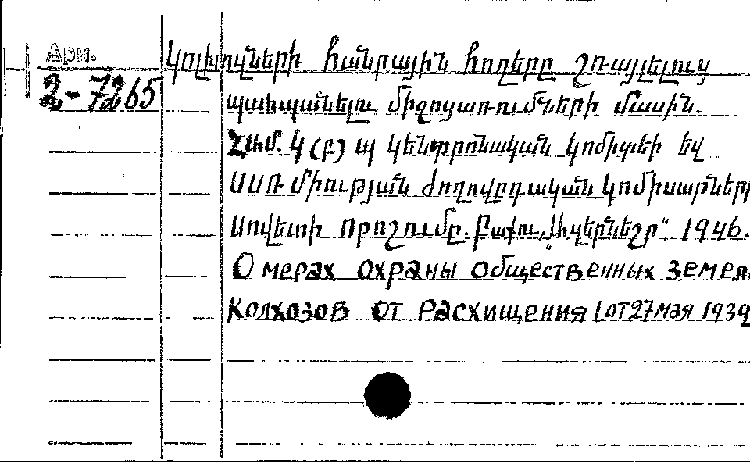 Арм.
2-7265
Կոլխոզների հանրային հողերը շռայլելուց
պահպանելու միջոցառումների մասին.
Համ. Կ(բ)պ կենտրոնական կոմիտեի եվ
ՍՍՌ միության ժողովրդական կոմիսարների
Սովետի որոշումը. Բաքու, 1946.
О мерах охраны общественных земель
Колхозов от расхищения [от 27 мая 1939